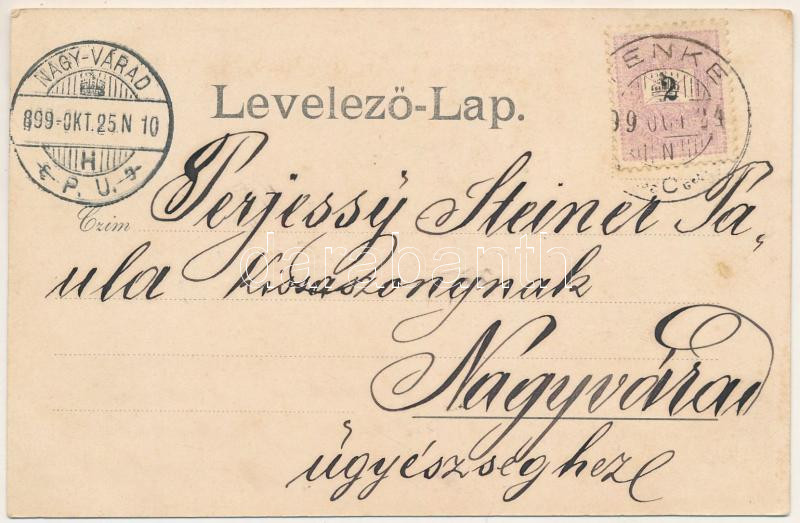 NAGY-VÁRAD
899-OKT.25.N 10
H
P. U.
Levelező-Lap.
ENKE
2
99 OKT. 24
N
C
Czim Perjessy Steiner Pa-
ula kisasszonynak
darabanth
Nagyvárad
ügyészséghez